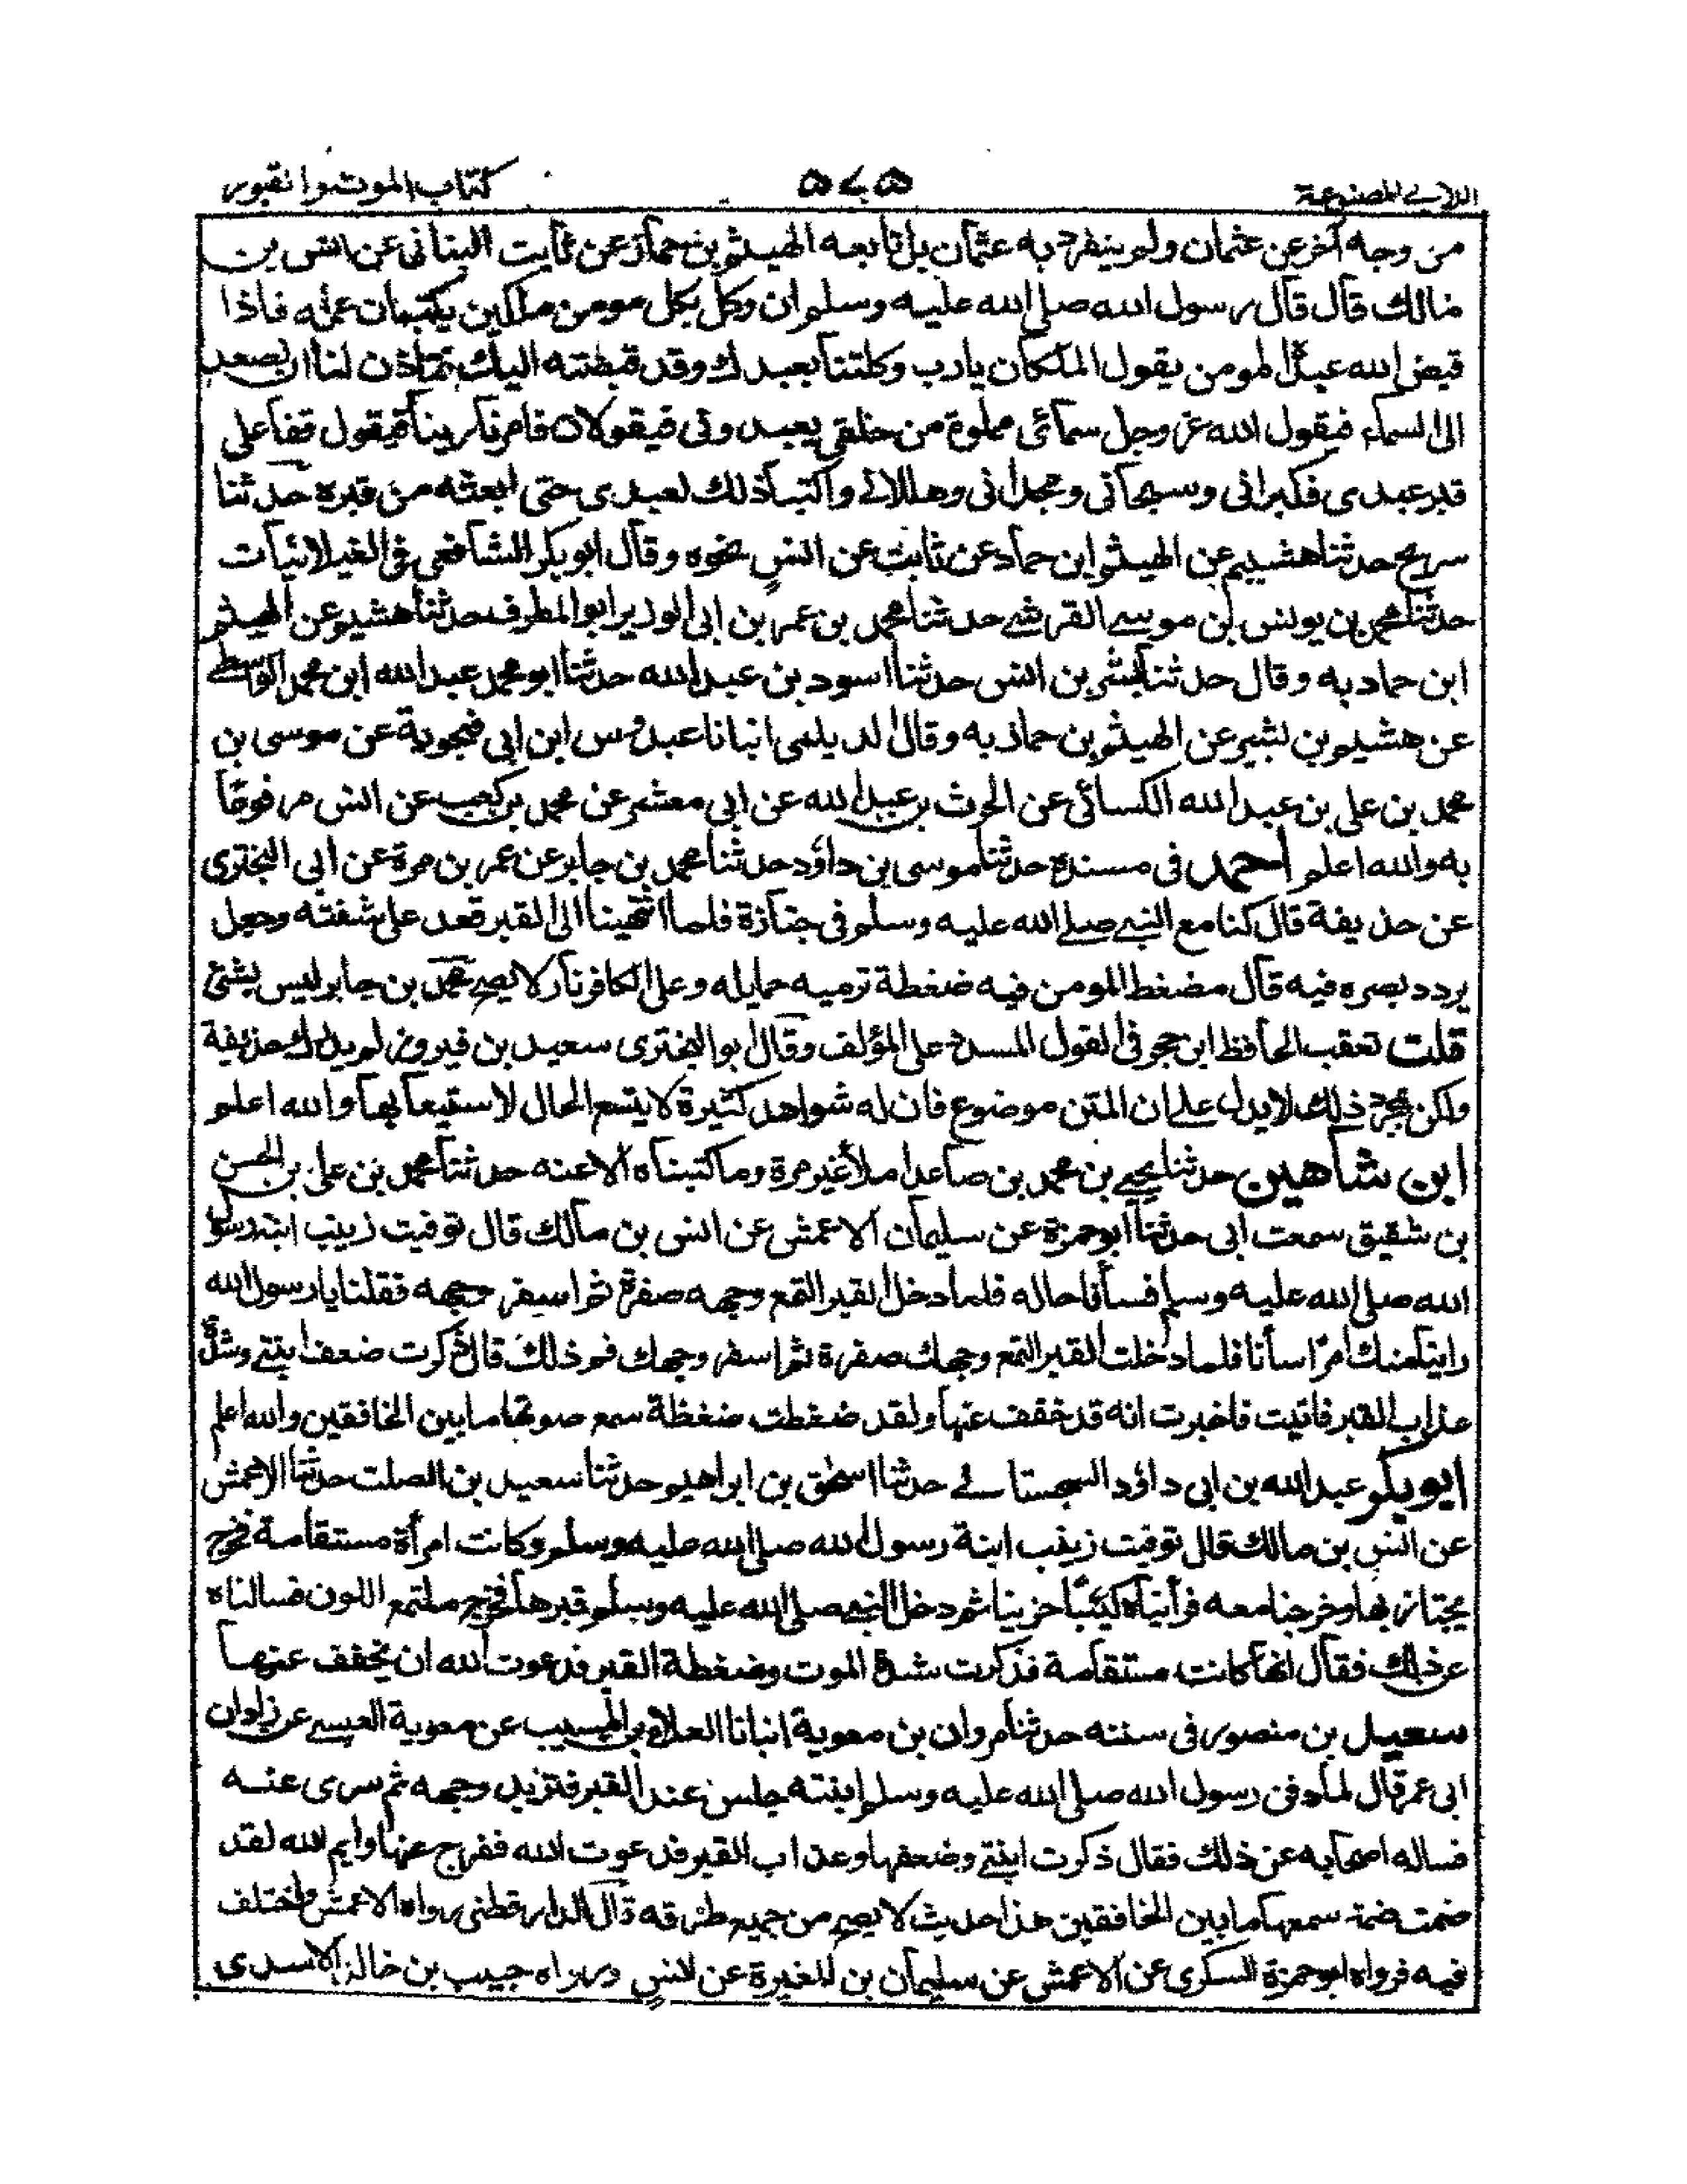 اللآلي المصنوعة
٥٧٥
كتاب الموت والقبور
من وجه آخر عن عثمان ولم ينفرد به عثمان بل تابعه الهيثم بن حماد عن ثابت البنانى عن انس بن
مالك قال قال رسول الله صلى الله عليه وسلم ان وكل بكل مومن ملكين يكتبان عمله فاذا
قبض الله عبده المومن يقول الملكان يارب وكلتنا بعبدك وقد قبضته اليك تأذن لنا ان نصعد
الى السماء فيقول الله عز وجل سمائى مملوة من خلقى يعبدونى فيقولان فامرنا ربنا فيقول قفا على
قبر عبدى فكبرانى وسبحانى ومجدانى وهللانى واكتبا ذلك لعبدى حتى ابعثه من قبره حدثنا
سريج حدثنا هشيم عن الهيثم ابن حماد عن ثابت عن انس نحوه وقال ابو بكر الشافعى فى الغيلانيات
حدثنا محمد بن يونس بن موسى القرشى حدثنا محمد بن عمر بن ابى الوزير ابو المطرف حدثنا هشيم عن الهيثم
ابن حماد به وقال حدثنا بشر بن انس حدثنا اسود بن عبد الله حدثنا ابو محمد عبد الله ابن محمد الواسطى
عن هشيم بن بشير عن الهيثم بن حماد به وقال الديلمى انبانا عبدوس ابن ابى فنجوية عن موسى بن
محمد بن على بن عبد الله الكسائى عن الحرث بن عبد الله عن ابى معشر عن محمد بن كعب عن انس مرفوعًا
به والله اعلم احمد فى مسنده حدثنا موسى بن داؤد حدثنا محمد بن جابر عن عمر بن مرة عن ابى البخترى
عن حذيفة قال كنا مع النبى صلى الله عليه وسلم فى جنازة فلما انتهينا الى القبر قعد على شفته وجعل
يردد بصره فيه قال مضغط المومن فيه ضغطة ترميه حمايله وعلى الكافر نار لا يصح محمد بن جابر ليس بشئ
قلت تعقب الحافظ ابن حجر فى القول المسدد على المؤلف وقال ابو البخترى سعيد بن فيروز لم يدرك حذيفة
ولكن مجرد ذلك لا يدل على ان المتن موضوع فان له شواهد كثيرة لا يتسع الحال لاستيعابها والله اعلم
ابن شاهين حدثنا يحيى بن محمد بن صاعد املاءً غير مرة وما كتبناه الا عنه حدثنا محمد بن على بن الحسن
بن شقيق سمعت ابى حدثنا ابو حمزة عن سليمان الاعمش عن انس بن مالك قال توفيت زينب ابنة رسول
الله صلى الله عليه وسلم فسأنا حاله فلما دخل القبر التمع وجهه صفرة ثم اسفر وجهه فقلنا يا رسول الله
راينا منك امرًا سأنا فلما دخلت القبر التمع وجهك صفرة ثم اسفر وجهك فمم ذلك قال ذكرت ضعف ابنتى وشدة
عذاب القبر فاتيت فاخبرت انه قد خفف عنها ولقد ضغطت ضغطة سمع صوتها ما بين الخافقين والله اعلم
ابو بكر عبد الله بن ابى داؤد السجستانى حدثنا اسحق بن ابراهيم حدثنا سعيد بن الصلت حدثنا الاعمش
عن انس بن مالك قال توفيت زينب ابنة رسول الله صلى الله عليه وسلم وكانت امرأة مستقامة فخرج
بجنازتها وخرجنا معه فرأيناه كئيبًا حزينا ثم دخل النبى صلى الله عليه وسلم قبرها فخرج ملتمع اللون فسالناه
عن ذلك فقال انها كانت مستقامة فذكرت شدة الموت وضغطة القبر فدعوت الله ان يخفف عنها
سعيد بن منصور فى سننه حدثنا مروان بن معوية انبانا العلاء بن المسيب عن معوية العبسى عن زاذان
ابى عمر قال لما دفن رسول الله صلى الله عليه وسلم ابنته جلس عند القبر فتزبد وجهه ثم سرى عنه
فساله اصحابه عن ذلك فقال ذكرت ابنتى وضعفها وعذاب القبر فدعوت الله ففرج عنها وايم الله لقد
ضمت ضمة سمعها ما بين الخافقين هذا حديث لا يصح من جميع طرقه قال الدارقطنى رواه الاعمش واختلف
فيه فرواه ابو حمزة السكرى عن الاعمش عن سليمان بن المغيرة عن انس ورواه حبيب بن خالد الاسدى